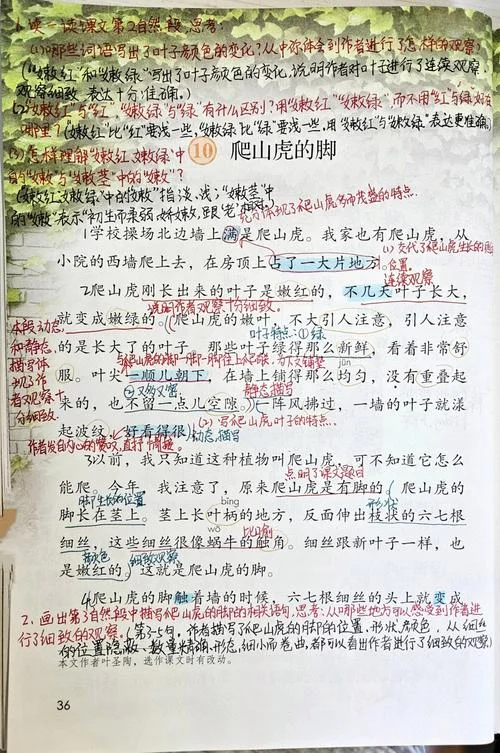 1.读一读课文第2自然段,思考:
(1)哪些词语写出了叶子颜色的变化?从中你体会到作者进行了怎样的观察?
("嫩红"和"嫩绿"写出了叶子颜色的变化,说明作者对叶子进行了连续观察,
观察细致,表达十分准确。)
(2)"嫩红"与"红""嫩绿"与"绿"有什么区别?用"嫩红""嫩绿"而不用"红"与"绿"好在
哪里?("嫩红"比"红"要浅一些,"嫩绿"比"绿"要浅一些,用"嫩红"与"嫩绿"表达更准确)
(3)怎样理解"嫩红、嫩绿"中
的"嫩"与"嫩茎"中的"嫩"?
("嫩红、嫩绿"中的"嫩"指淡、浅;"嫩茎"中
的"嫩"表示"初生而柔弱,娇嫩,跟'老'相对")
10 爬山虎的脚
充分体现了爬山虎多而茂盛的特点
1学校操场北边墙上满是爬山虎。我家也有爬山虎,从
(1)交代了爬山虎生长的
小院的西墙爬上去,在房顶上占了一大片地方。
位置。
连续观察
2爬山虎刚长出来的叶子是嫩红的,不几天叶子长大,
说明作者观察十分细致
就变成嫩绿的。爬山虎的嫩叶,不大引人注意,引人注意
叶子特点:①绿
的是长大了的叶子。那些叶子绿得那么新鲜,看着非常舒
jūn
服。叶尖一顺儿朝下,在墙上铺得那么均匀,没有重叠起
②又多又密
静态描写
来的,也不留一点儿空隙。一阵风拂过,一墙的叶子就漾
(2)写爬山虎叶子的特点
起波纹,好看得很。
动态描写
作者发自内心的赞叹,直抒胸臆。
3以前,我只知道这种植物叫爬山虎,可不知道它怎么
点明了课文题目
能爬。今年,我注意了,原来爬山虎是有脚的。爬山虎的
脚生长的位置
bǐng
形状
脚长在茎上。茎上长叶柄的地方,反面伸出枝状的六七根
wō
比喻
细丝,这些细丝很像蜗牛的触角。细丝跟新叶子一样,也
颜色
细致观察
是嫩红的。这就是爬山虎的脚。
4爬山虎的脚触着墙的时候,六七根细丝的头上就变成
2.画出第3自然段中描写爬山虎的脚的相关语句,思考:从哪些地方可以感受到作者进
行了细致的观察。(第3-5句,作者描写了爬山虎的脚的位置、形状、颜色,从细丝
的位置隐蔽、数量精确、形态细小而卷曲,都可以看出作者进行了细致的观察)
本文作者叶圣陶,选作课文时有改动。
36